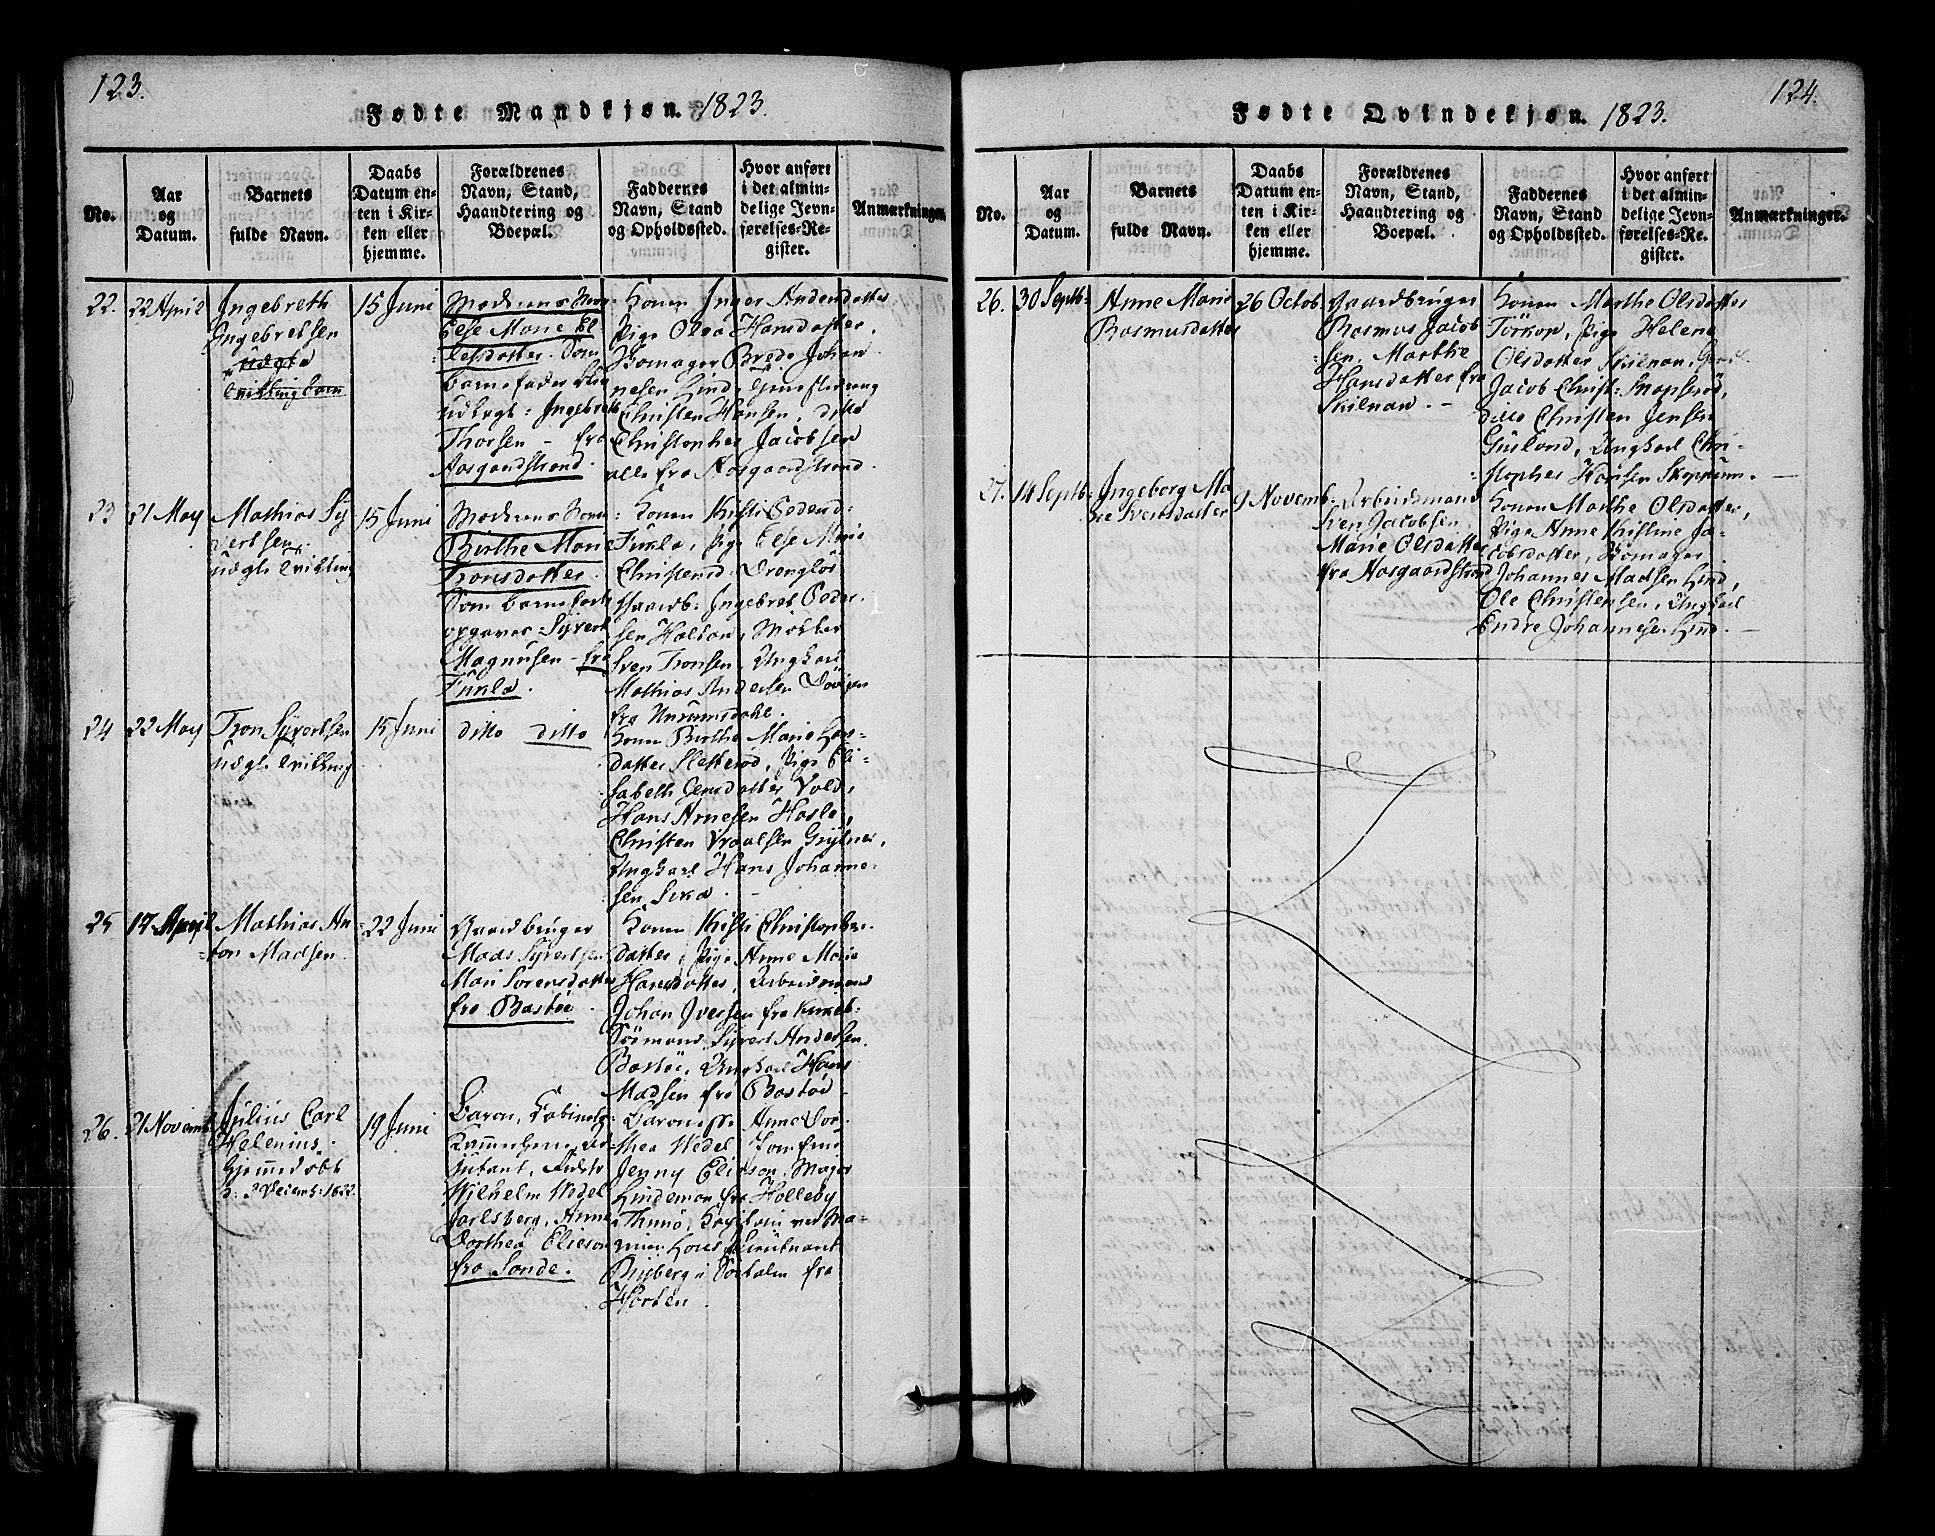 123.
Fødte Mandkjøn. 1823.
No.
Aar
og
Datum.
Barnets
fulde Navn.
Daabs
Datum en-
ten i Kir-
ken eller
hjemme.
Forældrenes
Navn, Stand,
Haandtering og
Boepæl.
Faddernes
Navn, Stand
og Opholdssted.
Hvor anført
i det almin-
delige Jevn-
førelses-Re-
gister.
Anmærkninger.
22.
22 April
Ingebreth
Ingebretsen
uægte
Tvilling barn
15 Juni
Moderens Navn
Else Marie El-
lefsdatter. Som
barnefader blev
udlagt: Ingebreth
Thorsen - fra
Aasgaardstrand.
Konen Inger Andersdatter
Pige Olea Hansdatter,
Skomager Brede Johan
nesen Lind,
Christen Hansen, ditto
Christopher Jacobsen
alle fra Aasgaardstrand.
23
21 May
Mathias Sy
vertsen.
uægte Tvilling
15 Juni
Moderens Navn
Birthe Marie
Tronsdatter.
Som barnefader
opgaves: Syvert
Magnusen - fra
Konen Kisti Pedersd:
Pige Else Marie
Christensd:
Gaardb: Ingebret Peder-
sen Holtan,
Sven Tronsen, Ungkarl
Mathias Andersen
fra
24
22 May
Tron Syvertsen
uægte Tvilling
15 Juni
ditto ditto
Konen Birthe Marie Han-
datter Sletterød, Pige Eli-
sabeth Jensdatter Vold,
Hans Arnesen Hasle,
Christen
Ungkarl Hans Johanne-
sen
25
17 April
Mathias An
ton Madsen.
22 Juni
Gaardbruger
Mads Syvertsen
Mari Sørensdatter
fra Bastøe
Konen Kisti Christopher-
datter, Pige Anne Marie
Hansdatter, Arbeidsmand
Johan Iversen fra
Sømand Syvert Andersen
Bastøe, Ungkarl Hans
Madsen fra Bastøe
26.
21 Novemb
Julius Carl
Helenius.
hjemmedøbt
d: 2 Decemb: 1822
19 Juni
Baron,
Kammerherre, Ad-
jutant,
Wilhelm Wedel
Jarlsberg, Anne
Dorthea Elieson
fra Sande.
Baronesse Anne Dor-
thea Wedel, Jomfrue
Jenny Elieson, Major
Lindeman fra Holleby
i Thunø, Kapitain ved Ma-
rinen
fra
Horten.
124.
Fødte Qvindekjøn. 1823.
No.
Aar
og
Datum.
Barnets
fulde Navn.
Daabs
Datum en-
ten i Kir-
ken eller
hjemme.
Forældrenes
Navn, Stand,
Haandtering og
Boepæl.
Faddernes
Navn, Stand
og Opholdssted.
Hvor anført
i det almin-
delige Jevn-
førelses-Re-
gister.
Anmærkninger.
26.
30 Septb:
Anne Marie
Rasmusdatter
26 Octob
Gaardbruger
Rasmus Jacob
sen, Marthe
Hansdatter fra
Skilnan. -
Konen Marthe Olsdatter
Tørkop, Pige Helene
Olsdatter Skilnan,
Jacob Christ:
ditto Christen Jensen
Gusland, Ungkarl Chri-
stopher Hansen Skoppum.
27.
14 Septb:
Ingeborg Ma
rie Svensdatter
9 Novemb:
Arbeidsmand
Sven Jacobsen,
Marie Olsdatter
fra Aasgaardstrand
Konen Marthe Olsdatter,
Pige Anne Kistine Ja-
cobsdatter, Skomager
Johannes Madsen Lind,
Ole Christensen, Ungkarl
Endre Johannesen Lind. -